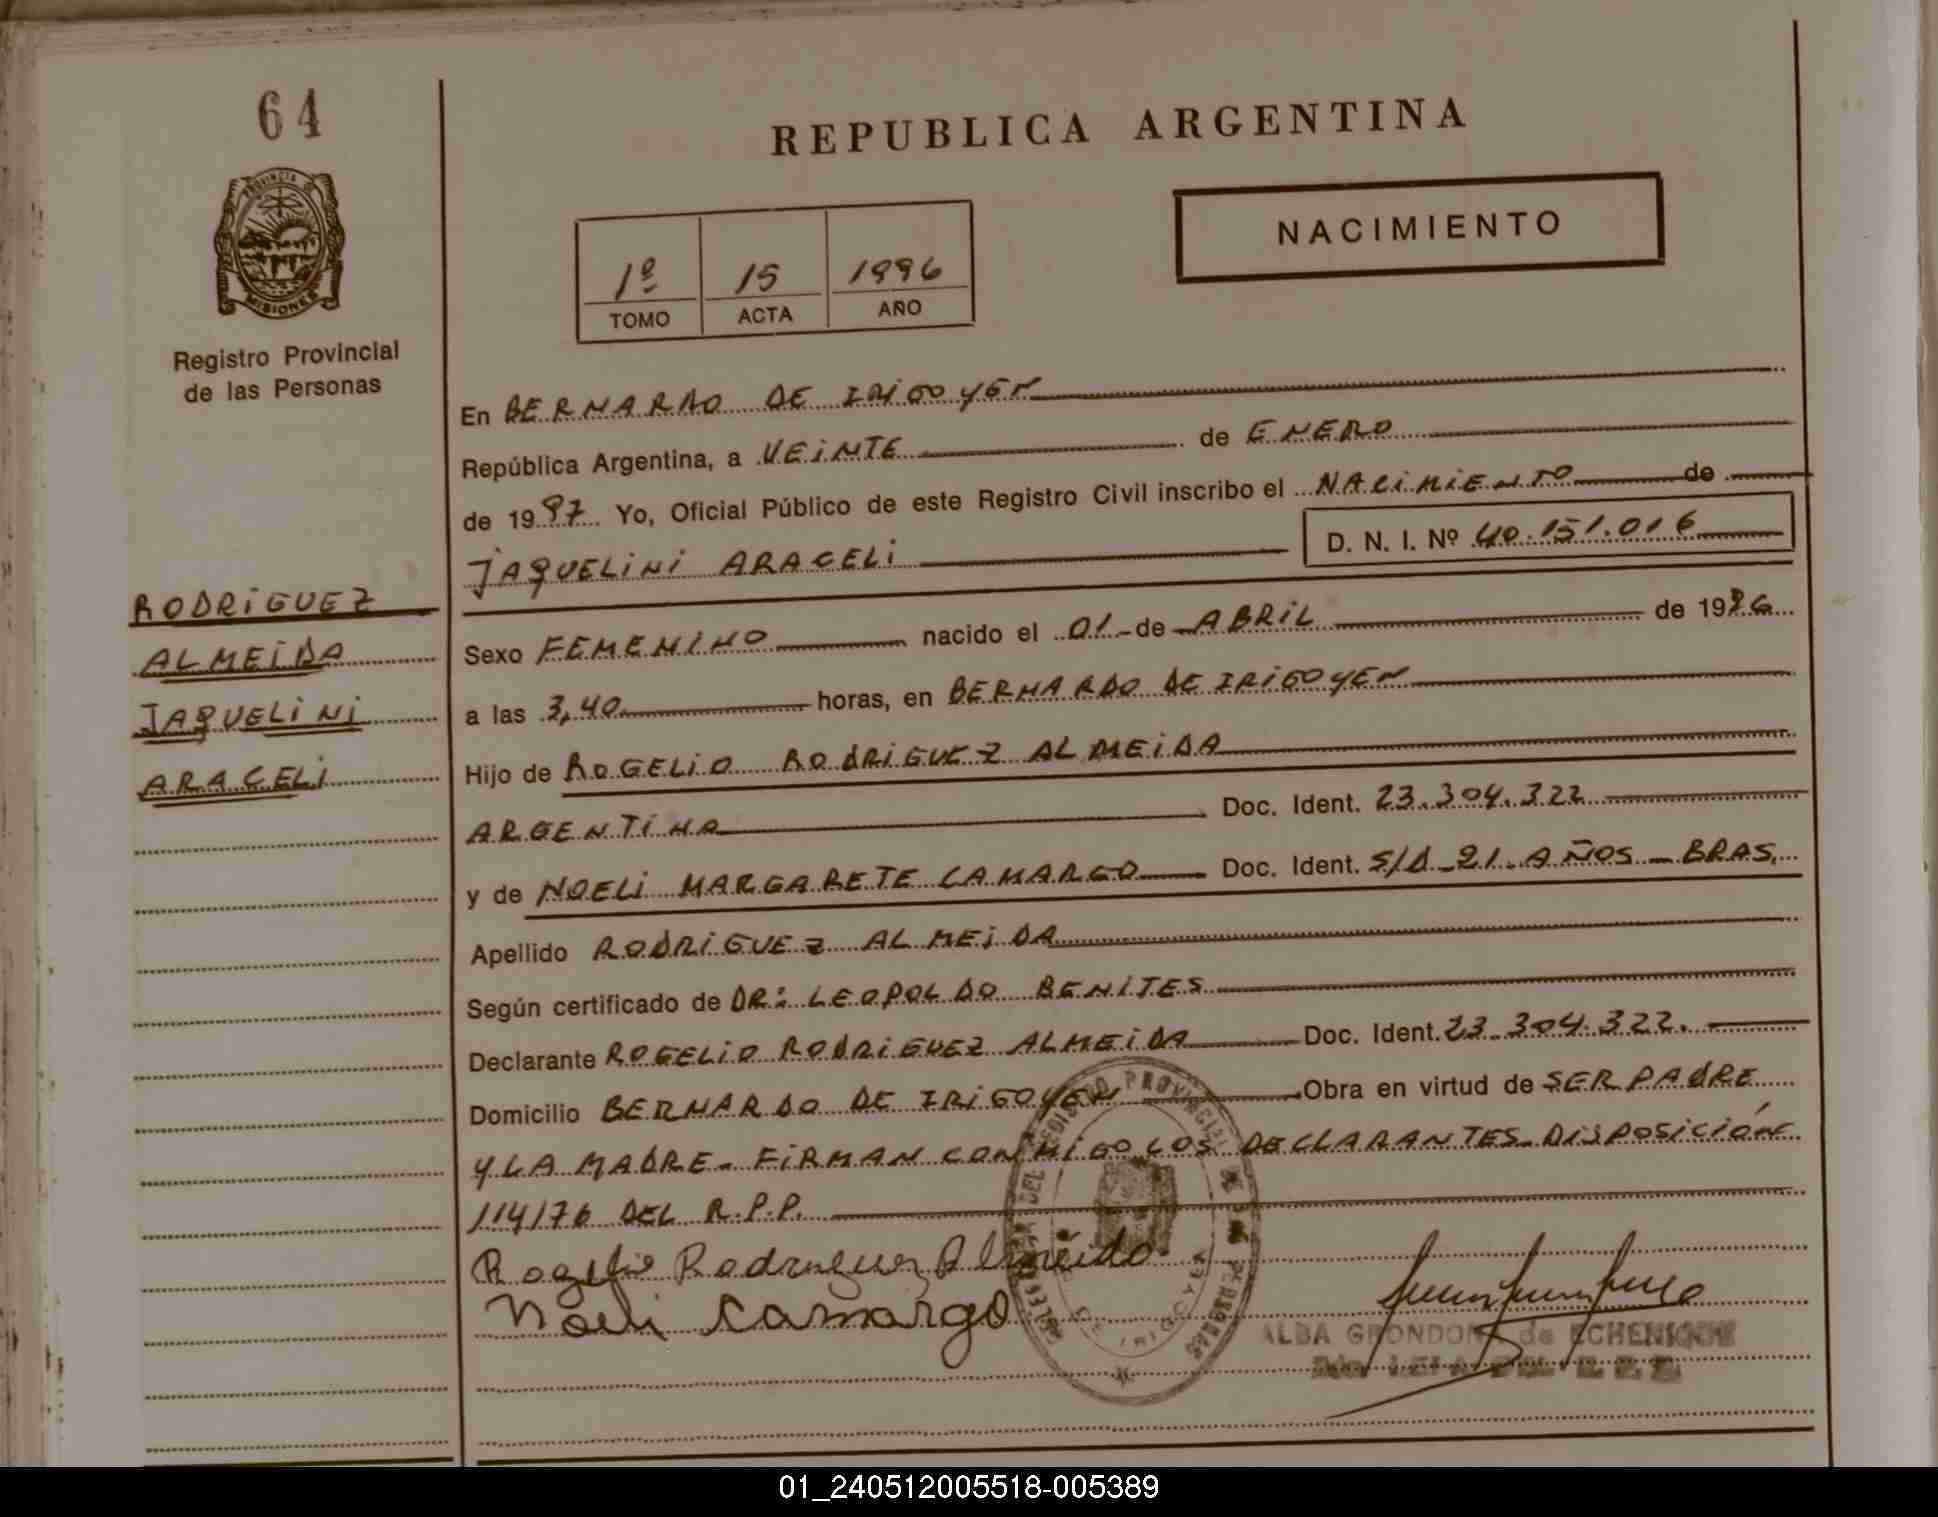 64
REPUBLICA ARGENTINA
PROVINCIA DE
MISIONES
Registro Provincial
de las Personas
NACIMIENTO
1º 15 1996
TOMO ACTA AÑO
En BERNARDO DE IRIGOYEN
República Argentina, a VEINTE de ENERO
de 1997 Yo, Oficial Público de este Registro Civil inscribo el NACIMIENTO de
JAQUELINI ARACELI D. N. I. Nº 40.151.016
RODRIGUEZ
ALMEIDA
JAQUELINI
ARACELI
Sexo FEMENINO nacido el 01 - de ABRIL de 1996
a las 3,40 horas, en BERNARDO DE IRIGOYEN
Hijo de ROGELIO RODRIGUEZ ALMEIDA
ARGENTINO Doc. Ident. 23.304.322
y de NOELI MARGARETE CAMARGO Doc. Ident. S/D - 21 AÑOS - BRAS.
Apellido RODRIGUEZ ALMEIDA
Según certificado de DR: LEOPOLDO BENITES
Declarante ROGELIO RODRIGUEZ ALMEIDA Doc. Ident. 23.304.322.
Domicilio BERNARDO DE IRIGOYEN Obra en virtud de SER PADRE
Y LA MADRE - FIRMAN CONMIGO LOS DECLARANTES - DISPOSICIÓN
114/76 DEL R.P.P.
Rogelio Rodriguez Almeida
Noeli Camargo
REGISTRO PROVINCIAL DE LAS PERSONAS
DE IRIGOYEN
ALBA GRONDONA de ECHENIQUE
01_240512005518-005389